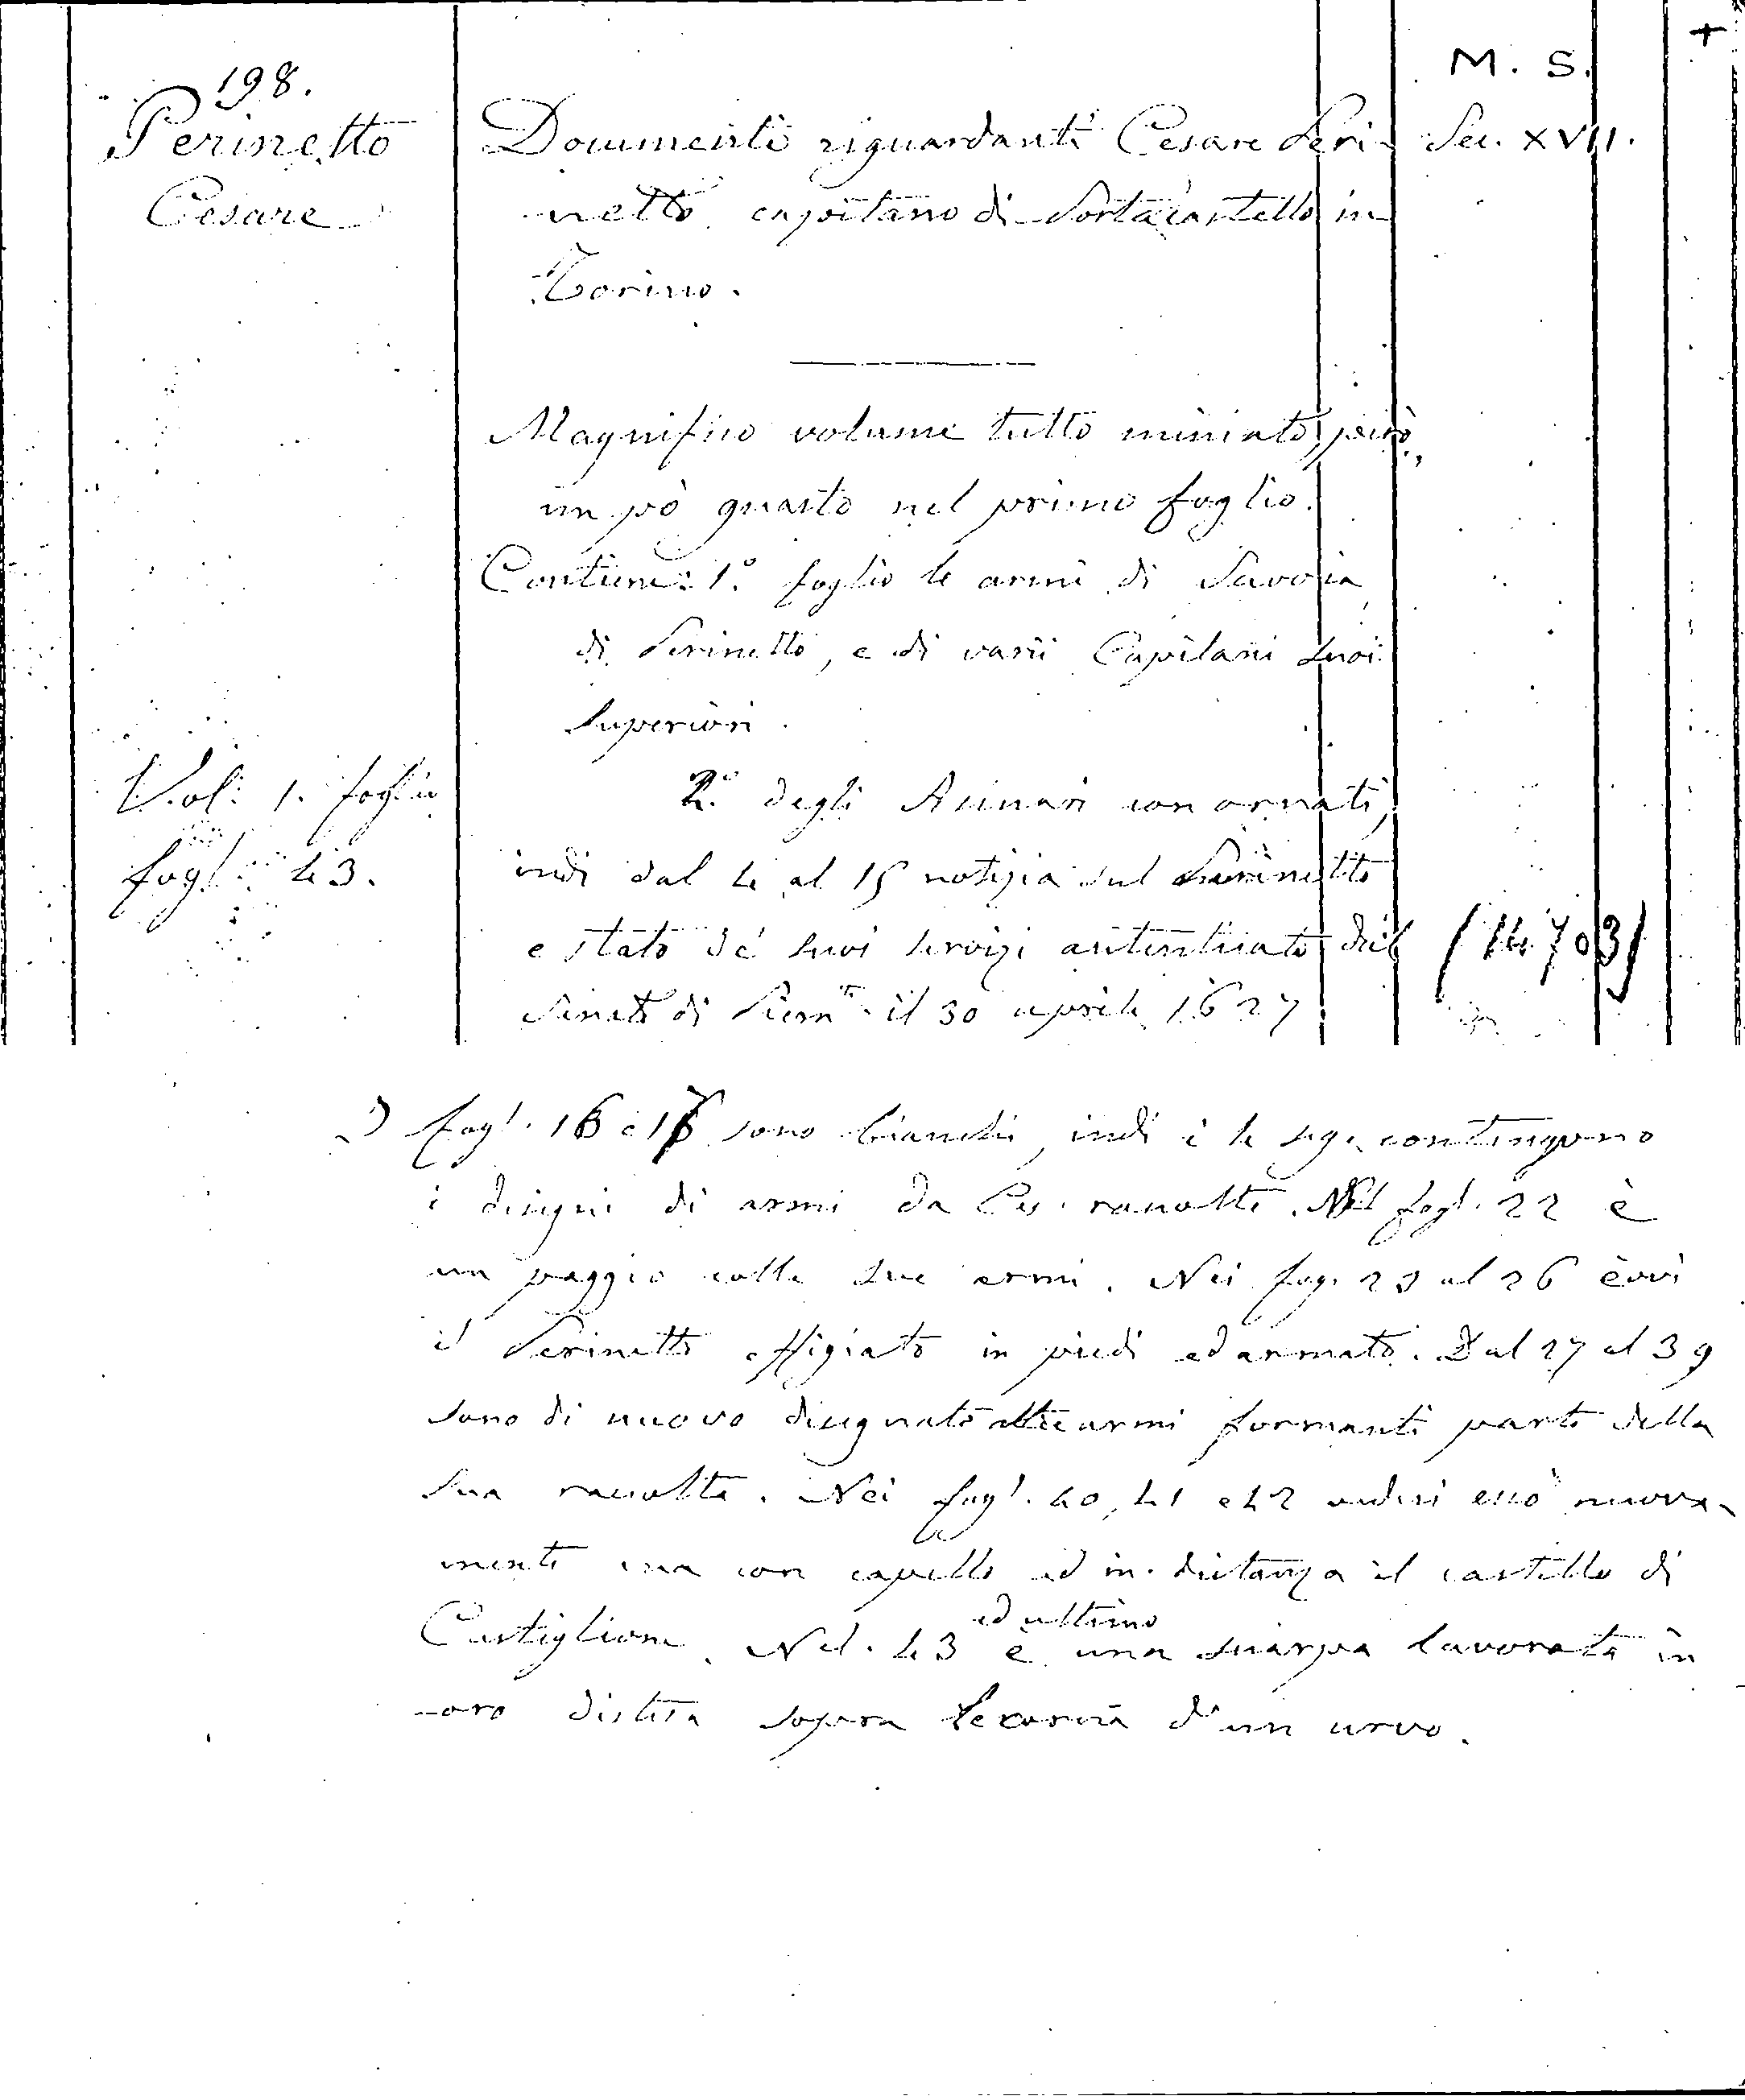 M. S. +
198.
Perinetto
Cesare
Documenti riguardanti Cesare Peri-
netto capitano di Porta castello in
Torino.
Sec. XVII.
Magnifico volume tutto miniato, però
un pò guasto nel primo foglio.
Contiene: 1.° foglio le armi di Savoia
di Perinetto, e di varii Capitani suoi
Superiori.
2.° degli Asinari con ornati,
Vol. 1. foglio
fogl. 43.
indi dal 4 al 15 notizia sul Perinetto
e stato de' suoi servizi autenticato dal
Senato di Piem.te il 30 aprile 1627
(14703)
fogl. 16 e 17 sono bianchi, indi i 4 seg. contengono
i disegni di armi da Ces. raccolte. Nel fogl. 22 è
un paggio colle sue armi. Nei fog. 23 al 26 èvvi
il Perinetto effigiato in piedi ed armato. Dal 27 al 39
sono di nuovo disegnate altre armi formanti parte della
sua raccolta. Nei fogl. 40, 41 e 42 vedesi esso nuova-
mente ma con capello ed in distanza il castello di
Castiglione. Nel 43 ed ultimo è una sciarpa lavorata in
oro distesa sopra le corna d'un cervo.